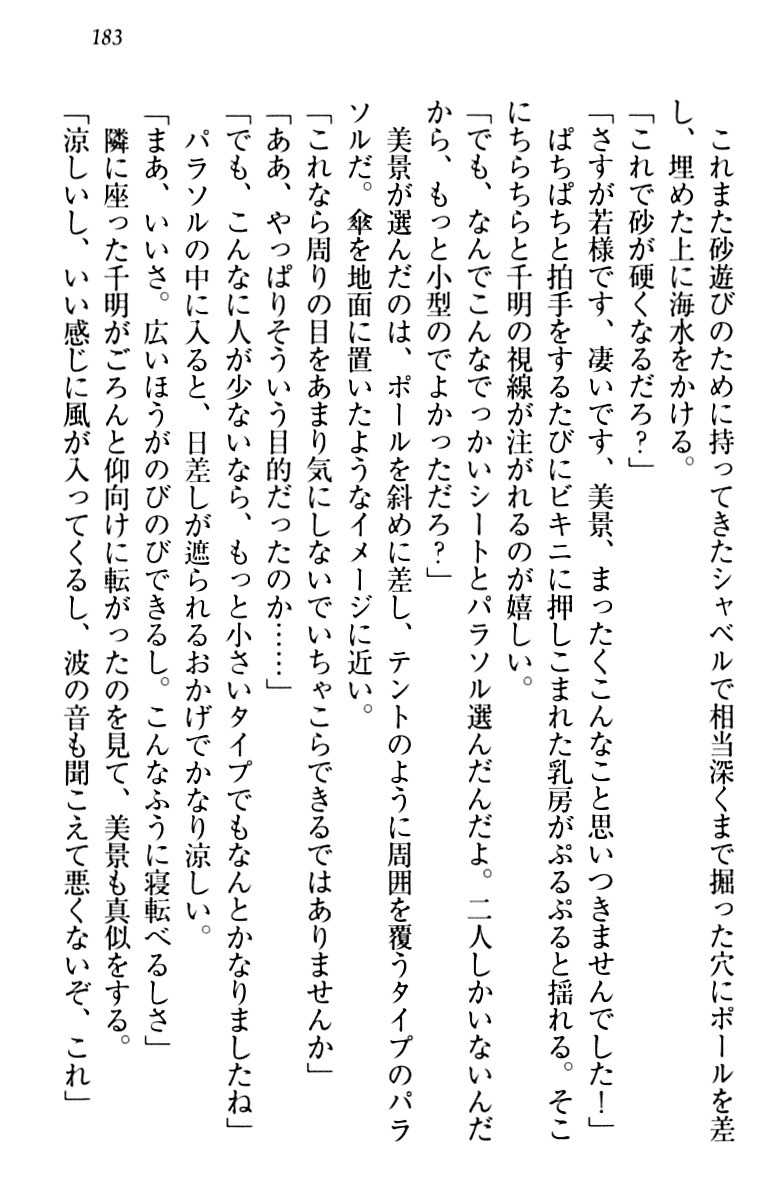 183
これまた砂遊びのために持ってきたシャベルで相当深くまで掘った穴にポールを差
し、埋めた上に海水をかける。
「これで砂が硬くなるだろ？」
「さすが若様です、凄いです、美景、まったくこんなこと思いつきませんでした！」
ぱちぱちと拍手をするたびにビキニに押しこまれた乳房がぷるぷると揺れる。そこ
にちらちらと千明の視線が注がれるのが嬉しい。
「でも、なんでこんなでっかいシートとパラソル選んだんだよ。二人しかいないんだ
から、もっと小型のでよかっただろ？」
美景が選んだのは、ポールを斜めに差し、テントのように周囲を覆うタイプのパラ
ソルだ。傘を地面に置いたようなイメージに近い。
「これなら周りの目をあまり気にしないでいちゃこらできるではありませんか」
「ああ、やっぱりそういう目的だったのか……」
「でも、こんなに人が少ないなら、もっと小さいタイプでもなんとかなりましたね」
パラソルの中に入ると、日差しが遮られるおかげでかなり涼しい。
「まあ、いいさ。広いほうがのびのびできるし。こんなふうに寝転べるしさ」
隣に座った千明がごろんと仰向けに転がったのを見て、美景も真似をする。
「涼しいし、いい感じに風が入ってくるし、波の音も聞こえて悪くないぞ、これ」